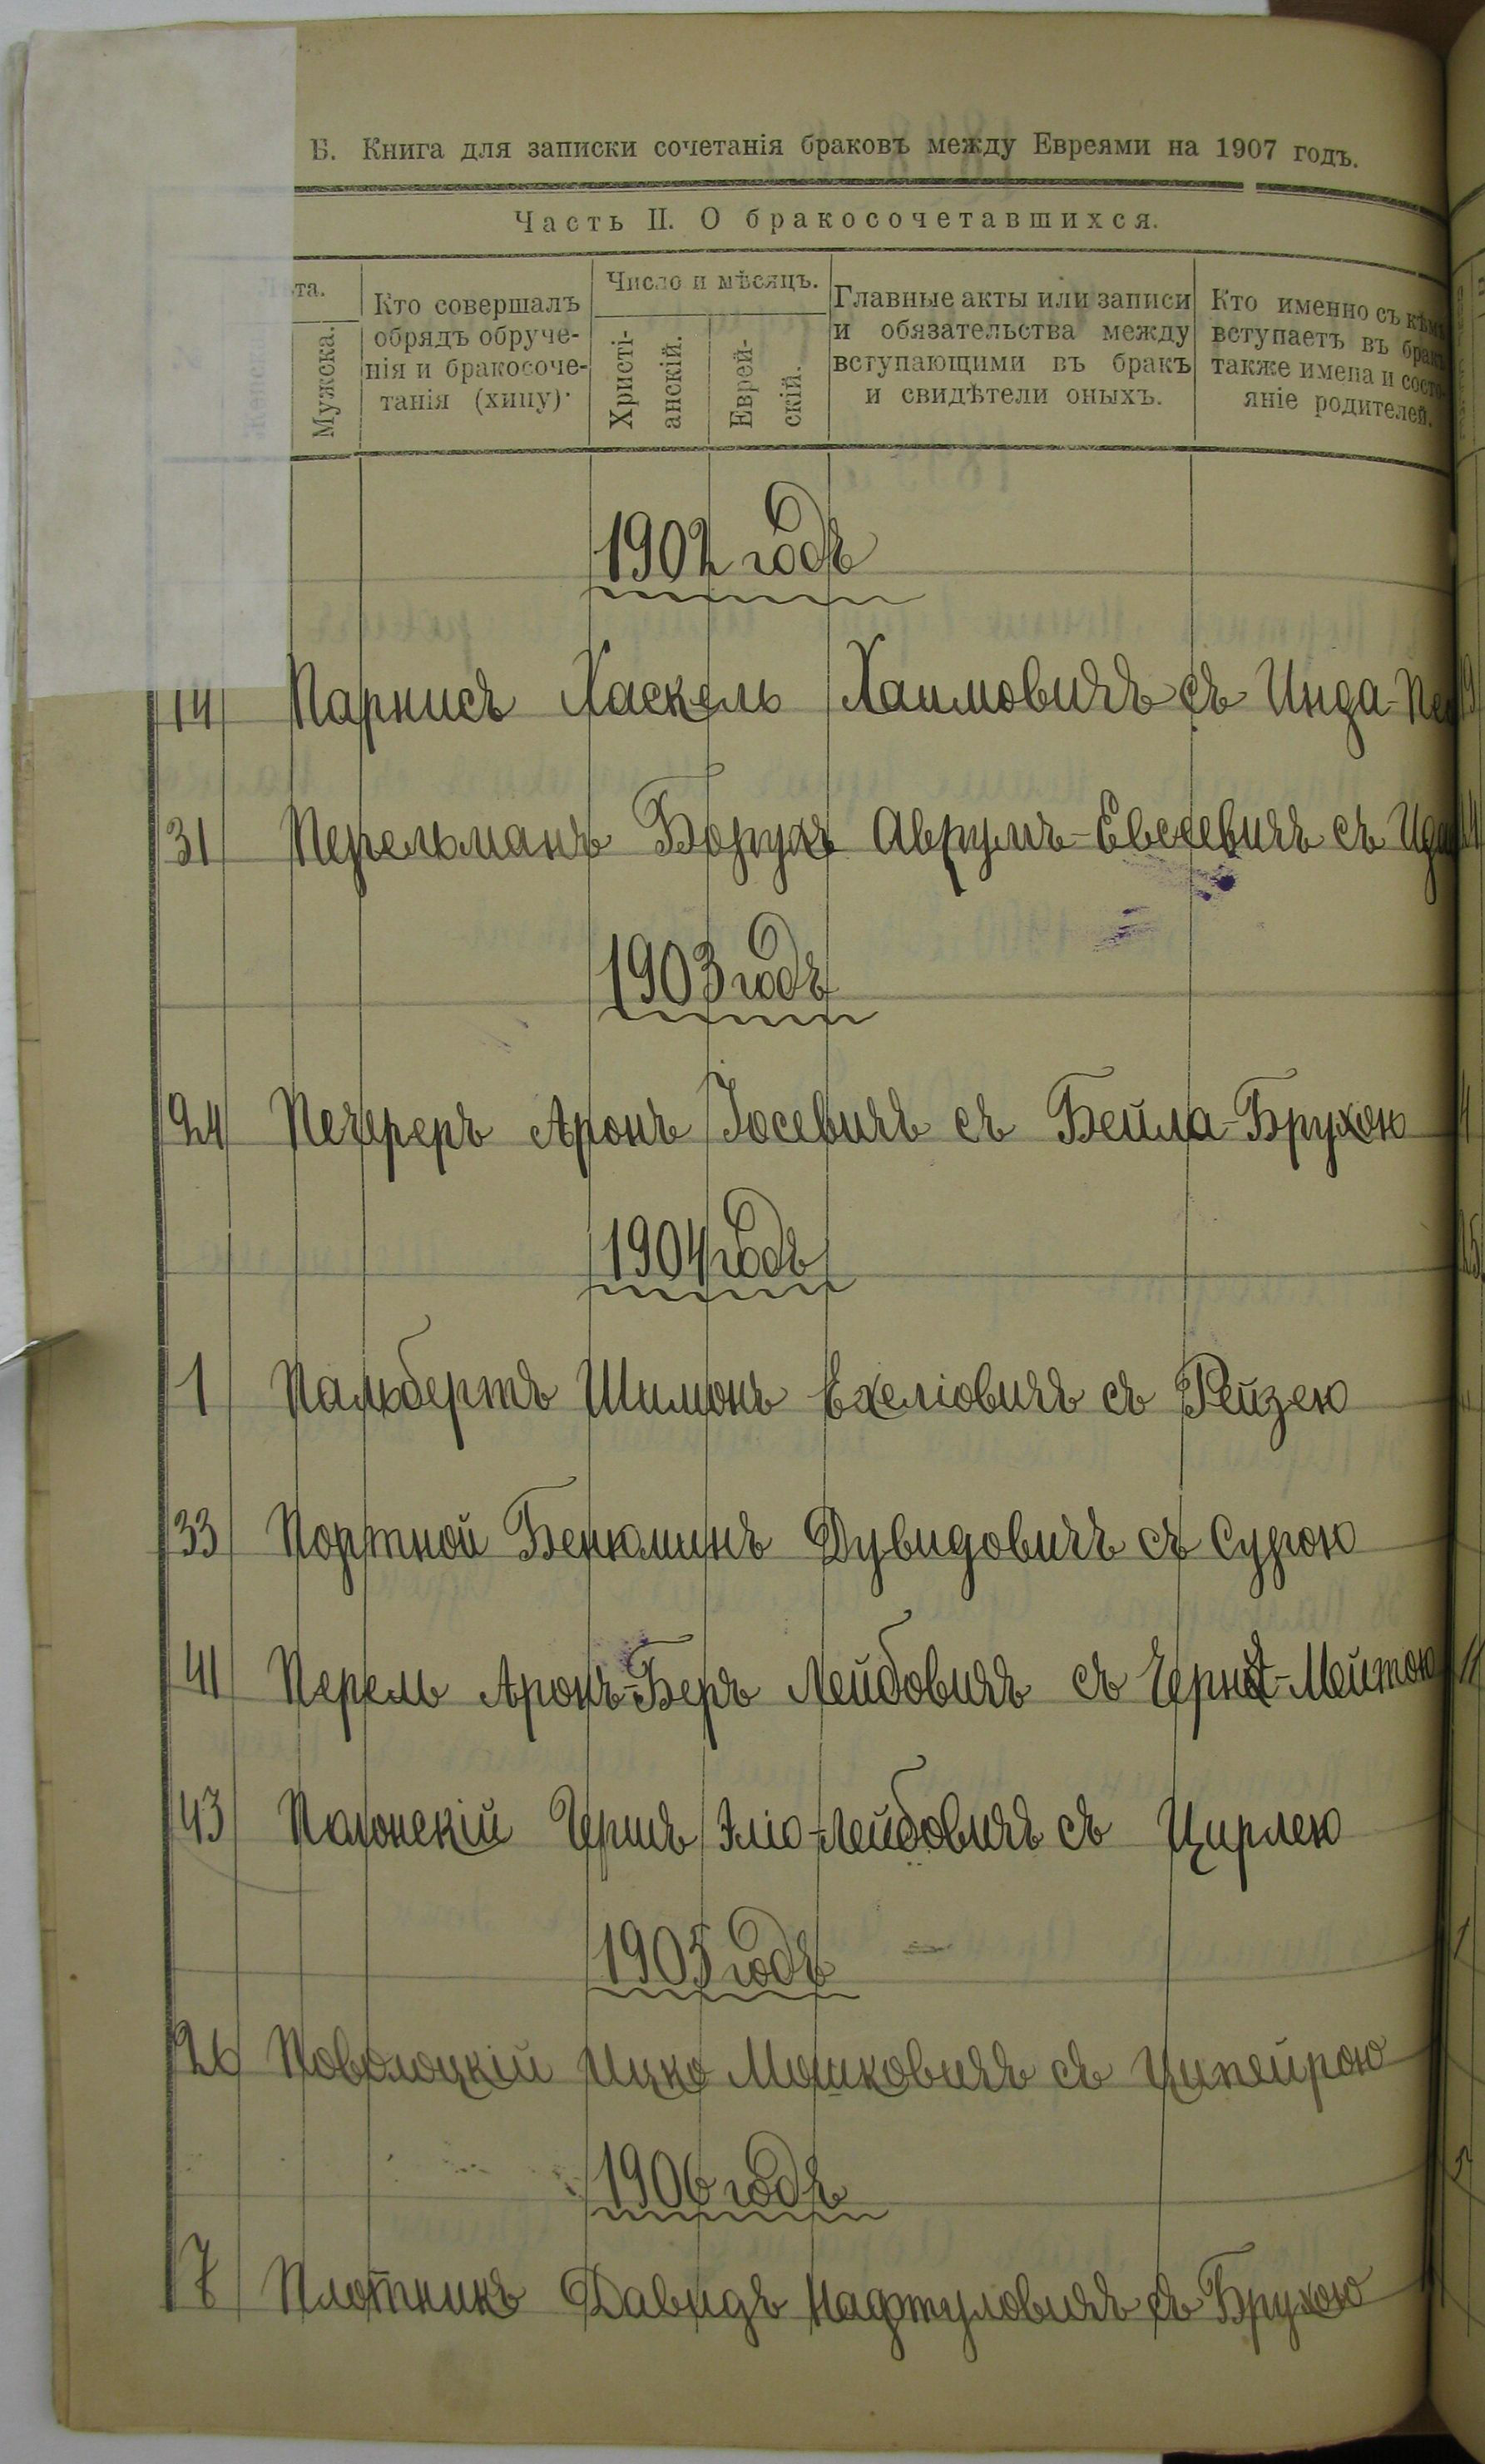 Б. Книга для записки сочетанія браковъ между Евреями на 1907 годъ.
Часть II. О бракосочетавшихся.
Мужска.
Кто совершалъ
обрядъ обруче-
нія и бракосоче-
танія (хипу).
Число и мѣсяцъ.
Христі-
анскій.
Еврей-
скій.
Главные акты или записи
и обязательства между
вступающими въ бракъ
и свидѣтели оныхъ.
Кто именно съ кѣмъ
вступаетъ въ бракъ
также имена и состо-
яніе родителей.
1902 годъ
14 Парнисъ Хаскель Хаимовичъ съ Инда-
31 Перельманъ Борухъ Аврумъ-Евсеевичъ съ
1903 годъ
24 Печереръ Аронъ Іосевичъ съ Бейла-Брухою
1904 годъ
1 Пальбертъ Шимонъ Ехеліовичъ съ Рейзею
33 Портной Бенюминъ Дувидовичъ съ Сурою
41 Перель Аронъ-Беръ Лейбовичъ съ Черна-Мейтою
43 Палонскій Гершъ Эліо-Лейбовичъ съ Цирлею
1905 годъ
26 Поволоцкій Ицко Мошковичъ съ Ципейрою
1906 годъ
7 Плотникъ Давидъ Нафтуловичъ съ Брухою